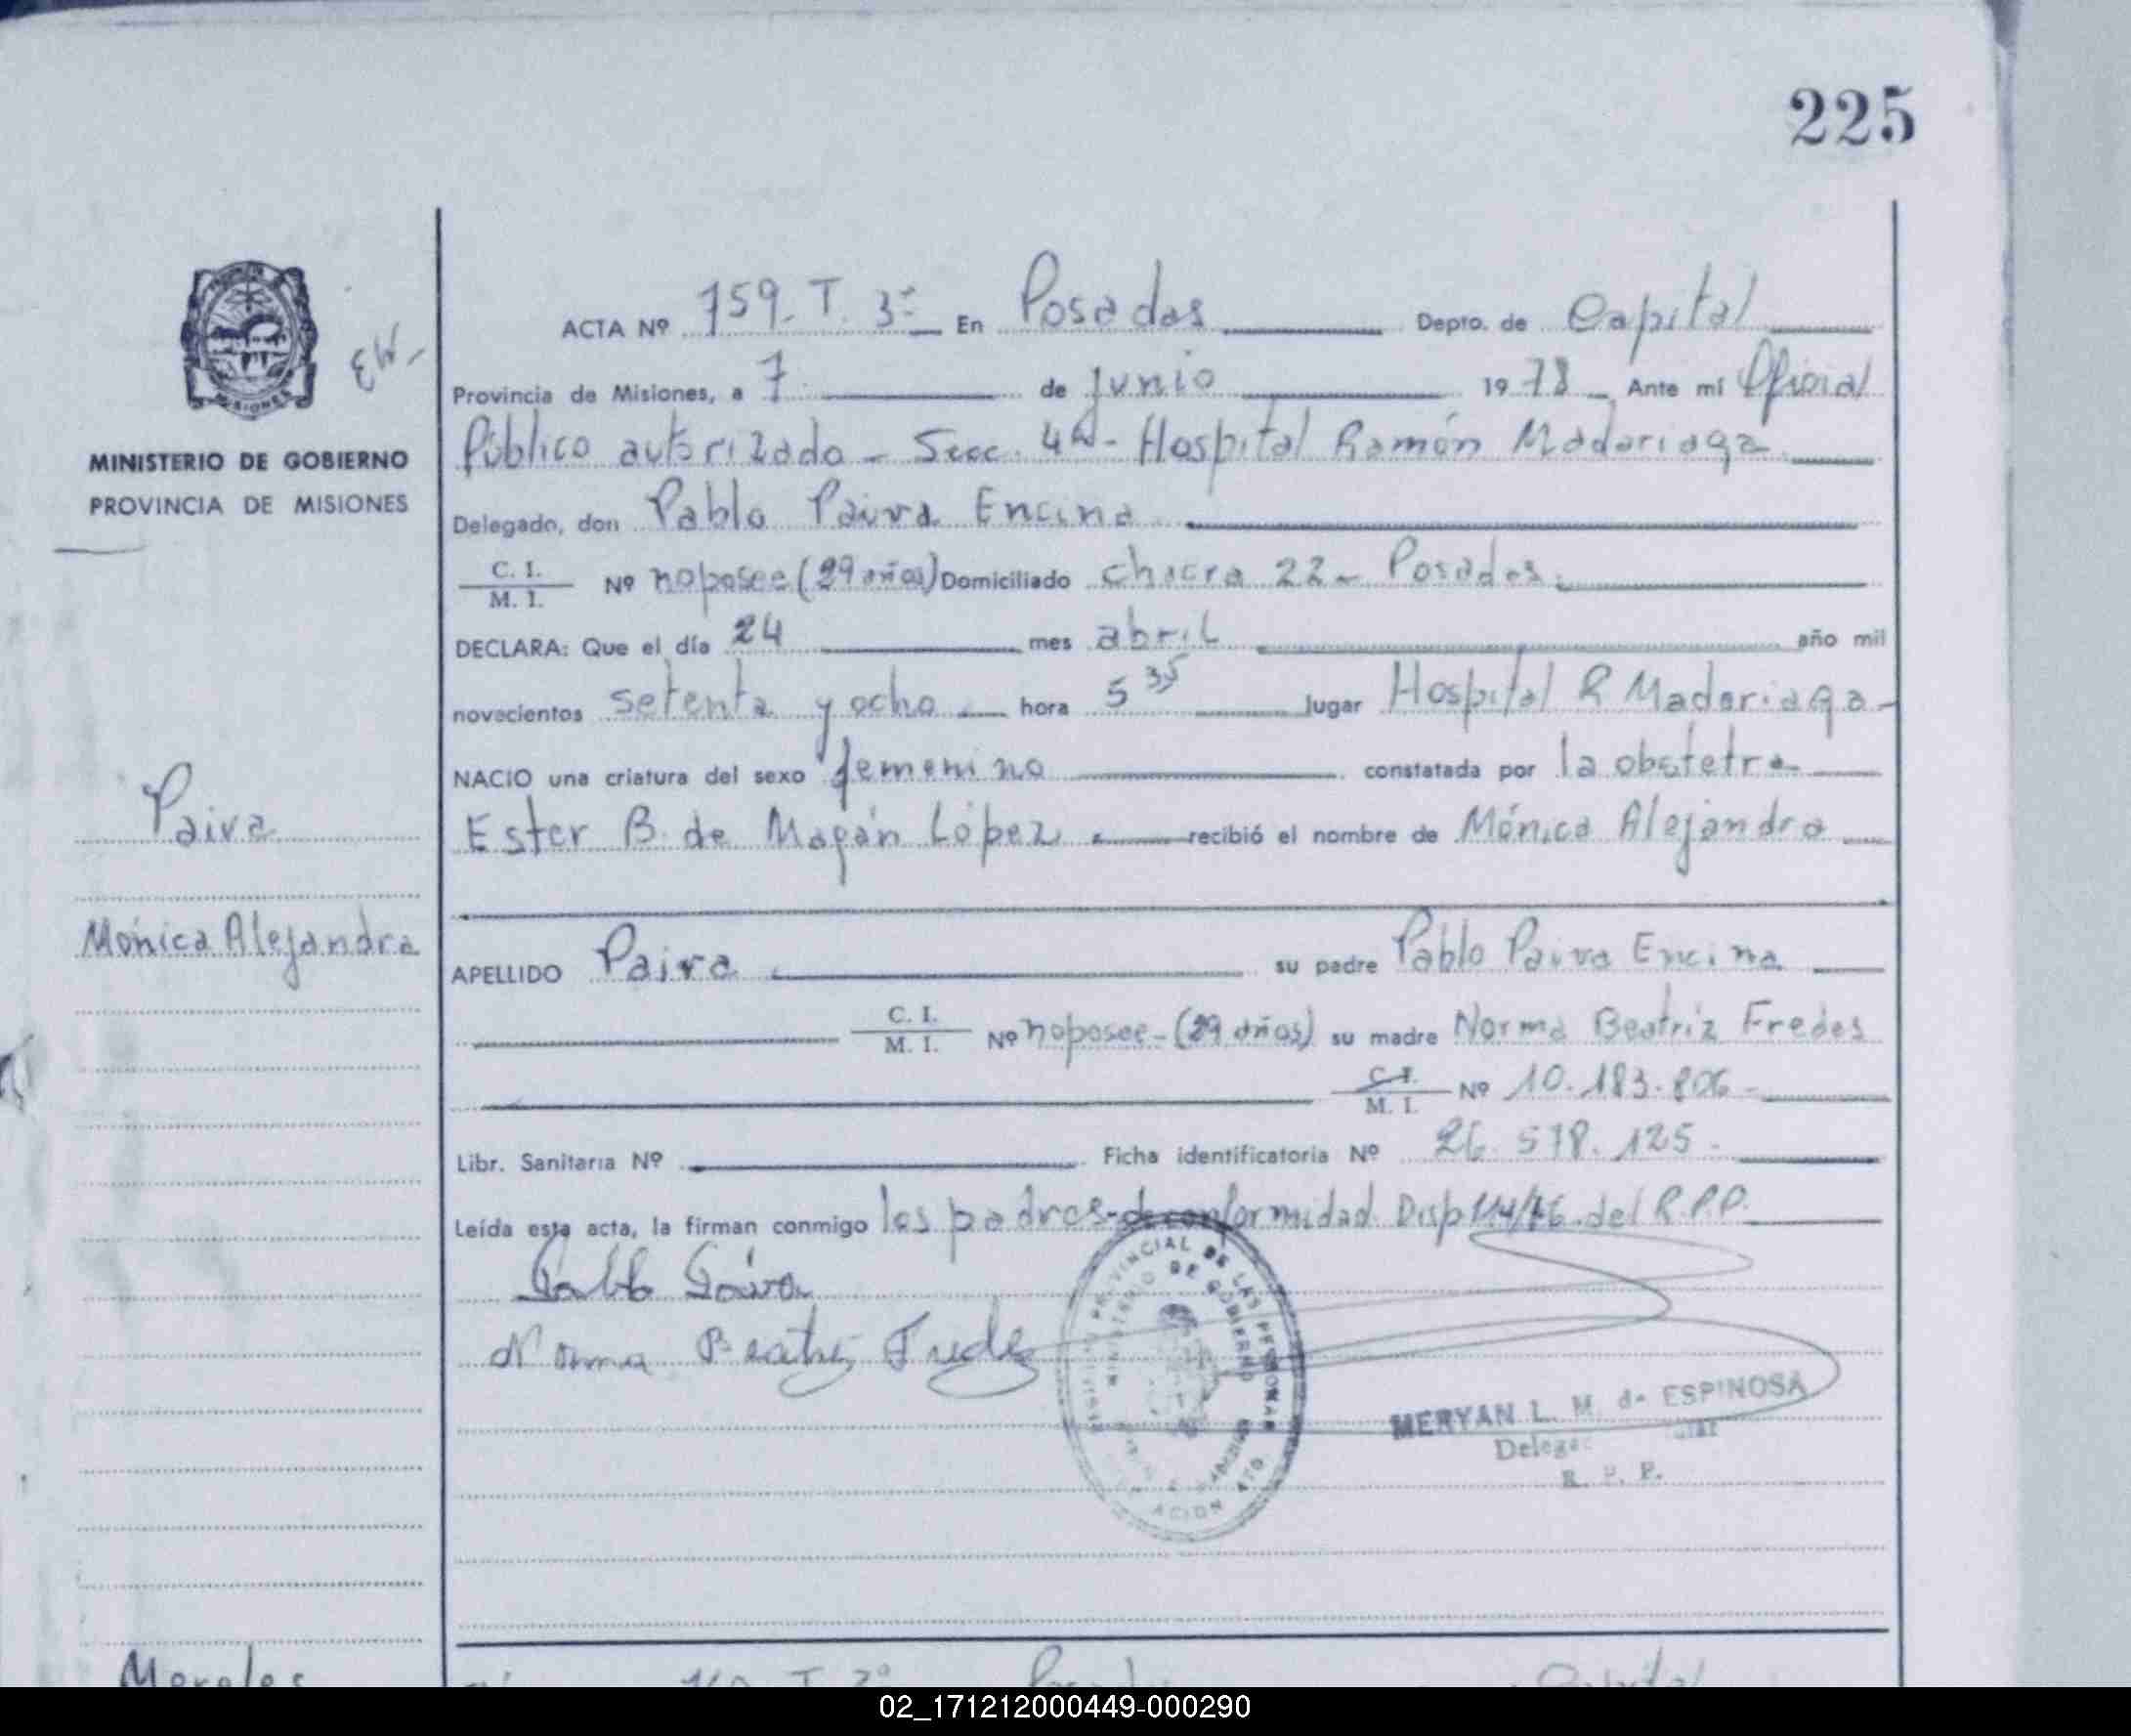 225
MINISTERIO DE GOBIERNO
PROVINCIA DE MISIONES
Paiva
Mónica Alejandra
ACTA Nº 759 T. 3º En Posadas Depto. de Capital
Provincia de Misiones, a 7 de Junio 1978 Ante mí Oficial
Público autorizado - Secc. 4ta - Hospital Ramón Madariaga
Delegado, don Pablo Paiva Encina
C. I. / M. I. Nº no posee (29 años) Domiciliado chacra 22 - Posadas.
DECLARA: Que el día 24 mes abril año mil
novecientos setenta y ocho hora 5 35 lugar Hospital R Madariaga -
NACIO una criatura del sexo femenino constatada por la obstetra
Ester B. de Magán López recibió el nombre de Mónica Alejandra
APELLIDO Paiva su padre Pablo Paiva Encina
C. I. / M. I. Nº no posee - (29 años) su madre Norma Beatriz Fredes
C. I. / M. I. Nº 10.183.806 -
Libr. Sanitaria Nº Ficha identificatoria Nº 26.578.125 -
Leída esta acta, la firman conmigo los padres - de conformidad Disp 114/76 del R.P.P.
Pablo Paiva
Norma Beatriz Fredes
PROVINCIAL DE LAS PERSONAS
MINISTERIO DE GOBIERNO
MERYAN L. M. de ESPINOSA
R. P. P.
Morales
T. 3º Posadas Capital
02_171212000449-000290